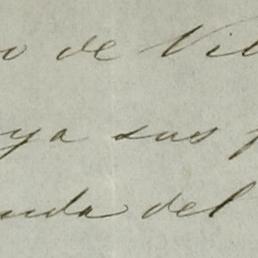 o de Vil
ya sus p
nda del